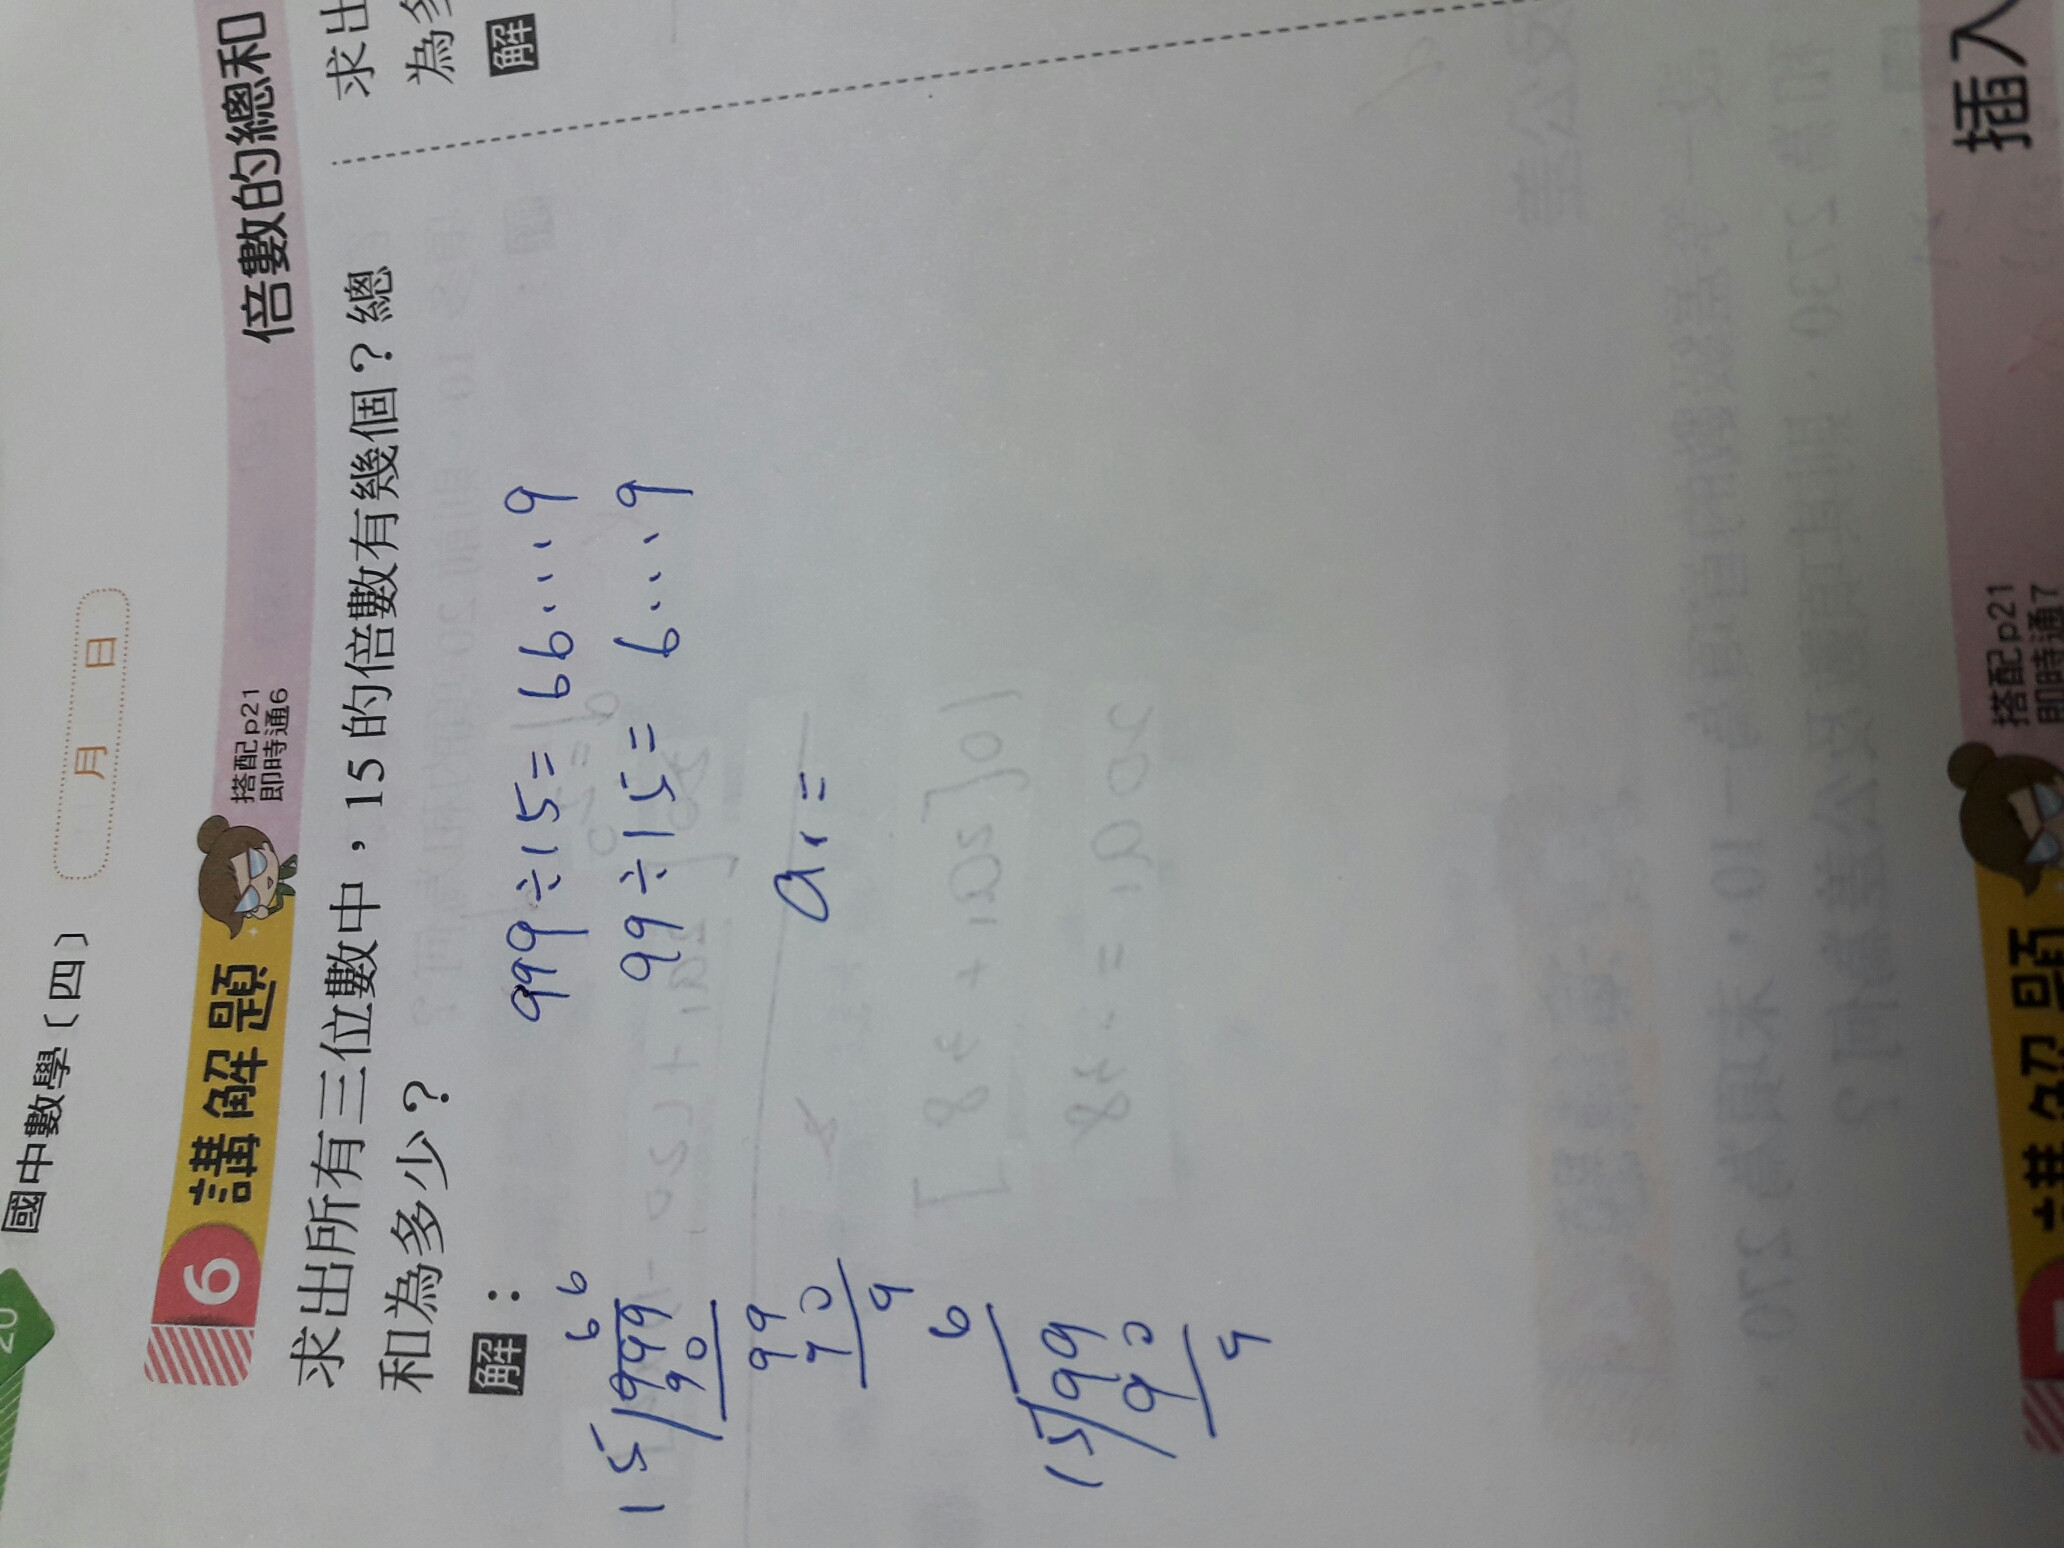 20
國中數學〔四〕
月 日
6 講解題
搭配p21
即時通6
倍數的總和
求出所有三位數中，15 的倍數有幾個？總
和為多少？
解：
999÷15=66…9
99÷15=6…9
a₁=
66
15/999
90
99
90
9
6
15/99
90
9
求出
為多
解
講解題
搭配p21
即時通7
插入